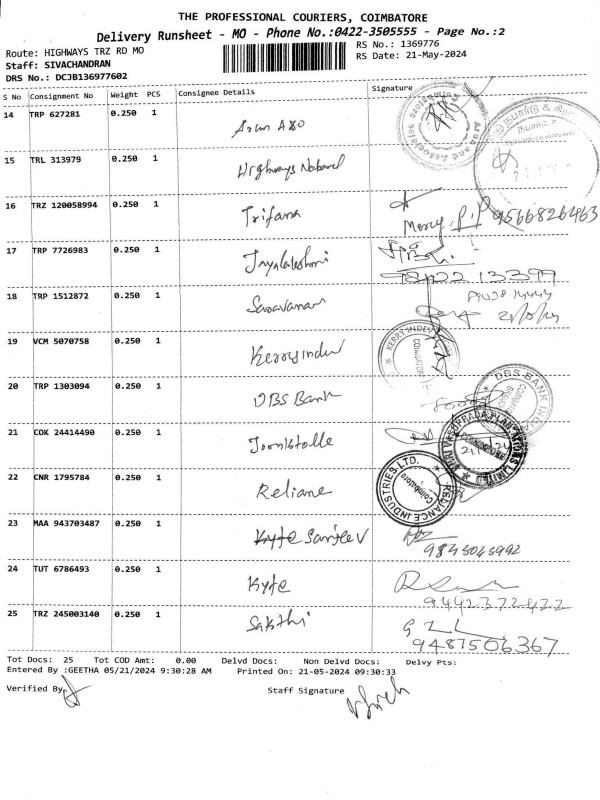 THE PROFESSIONAL COURIERS, COIMBATORE
Delivery Runsheet - MO - Phone No.:0422-3505555 - Page No.:2
Route: HIGHWAYS TRZ RD MO
RS No.: 1369776
Staff: SIVACHANDRAN
RS Date: 21-May-2024
DRS No.: DCJB136977602
S No Consignment No Weight PCS Consignee Details Signature
14 TRP 627281 0.250 1
15 TRL 313979 0.250 1 Highways
16 TRZ 120058994 0.250 1 Trifana Mercy. P. P 9566826463
17 TRP 7726983 0.250 1
98422 13399
18 TRP 1512872 0.250 1 Saravanan
21/5/24
19 VCM 5070758 0.250 1 Kerry Indev KERRY INDEV COIMBATORE
20 TRP 1303094 0.250 1 DBS Bank DBS BANK INDIA
21 COK 24414490 0.250 1
22 CNR 1795784 0.250 1 Reliane RELIANCE INDUSTRIES LTD. Coimbatore
23 MAA 943703487 0.250 1 Sanjeev
9843045992
24 TUT 6786493 0.250 1 Kyte
9442372422
25 TRZ 245003140 0.250 1 Sakthi
9487506367
Tot Docs: 25 Tot COD Amt: 0.00 Delvd Docs: Non Delvd Docs: Delvy Pts:
Entered By :GEETHA 05/21/2024 9:30:28 AM Printed On: 21-05-2024 09:30:33
Verified By Staff Signature